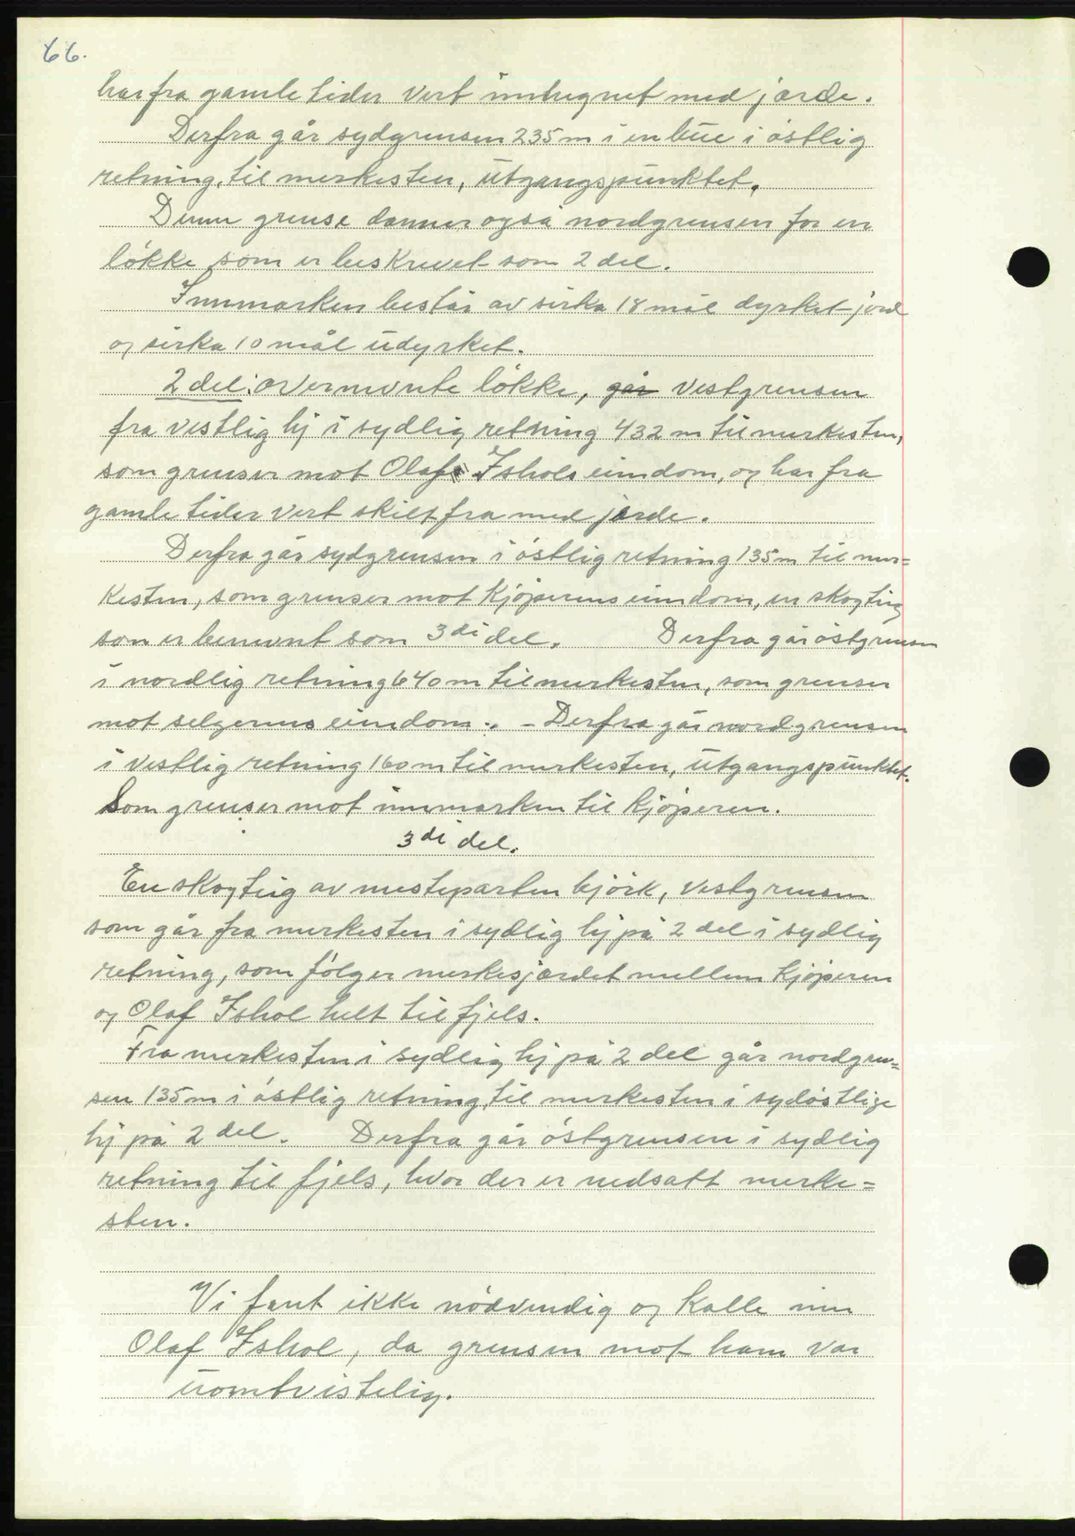 66.
har fra gamle tider vert innhegnet med jærde.
Derfra går sydgrensen 235 m i en bue i østlig
retning, til merkesten, utgangspunktet.
Denne grense danner også nordgrensen for en
løkke som er beskrevet som 2 del.
Innmarken består av sirka 18 mål dyrket jord
og sirka 10 mål udyrket.
2 del: overnevnte løkke, går vestgrensen
fra vestlig hj i sydlig retning 432 m til merkesten,
som grenser mot Olaf Ishols eiendom, og har fra
gamle tider vert skilt fra med jærde.
Derfra går sydgrensen i østlig retning 135 m til mer=
kesten, som grenser mot kjøperens eiendom, en skogteig
som er benevnt som 3di del. Derfra går østgrensen
i nordlig retning 640 m til merkesten, som grenser
mot selgerens eiendom. - Derfra går nordgrensen
i vestlig retning 160 m til merkesten, utgangspunktet.
Som grenser mot innmarken til kjøperen.
3di del.
En skogteig av mesteparten bjørk, vestgrensen
som går fra merkesten i sydlig hj på 2 del i sydlig
retning, som følger merkesjærdet mellem kjøperen
og Olaf Ishol helt til fjels.
Fra merkesten i sydlig hj på 2 del går nordgren=
sen 135 m i østlig retning, til merkesten i sydøstlige
hj på 2 del. Derfra går østgrensen i sydlig
retning til fjels, hvor der er nedsatt merke=
sten.
Vi fant ikke nødvendig og kalle inn
Olaf Ishol, da grensen mot ham var
uomtvistelig.